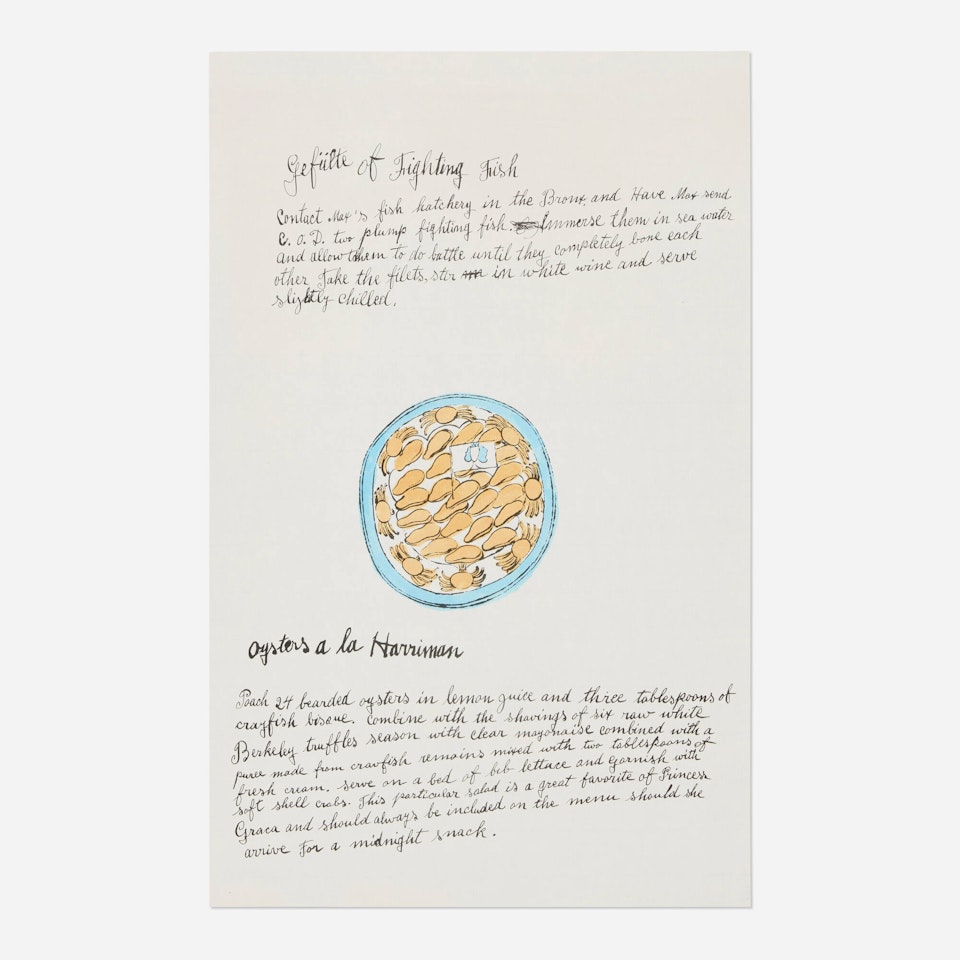 Gefülte of Fighting Fish
Contact Max's fish hatchery in the Bronx, and Have Max send
C.O.D. two plump fighting fish. Immerse them in sea water
and allow them to do battle until they completely bone each
other Take the filets, stir in white wine and serve
slightly chilled.
Oysters a la Harriman
Poach 24 bearded oysters in lemon juice and three tablespoons of
crayfish bisque. Combine with the shavings of six raw white
Berkeley truffles season with clear mayonaise combined with a
puree made from crawfish remains mixed with two tablespoons of
fresh cream. serve on a bed of bib lettuce and garnish with
soft shell crabs. This particular salad is a great favorite of Princess
Graca and should always be included on the menu should she
arrive for a midnight snack.